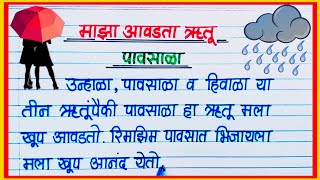 माझा आवडता ऋतू
पावसाळा
उन्हाळा, पावसाळा व हिवाळा या
तीन ऋतूंपैकी पावसाळा हा ऋतू मला
खूप आवडतो. रिमझिम पावसात भिजायला
मला खूप आनंद येतो.